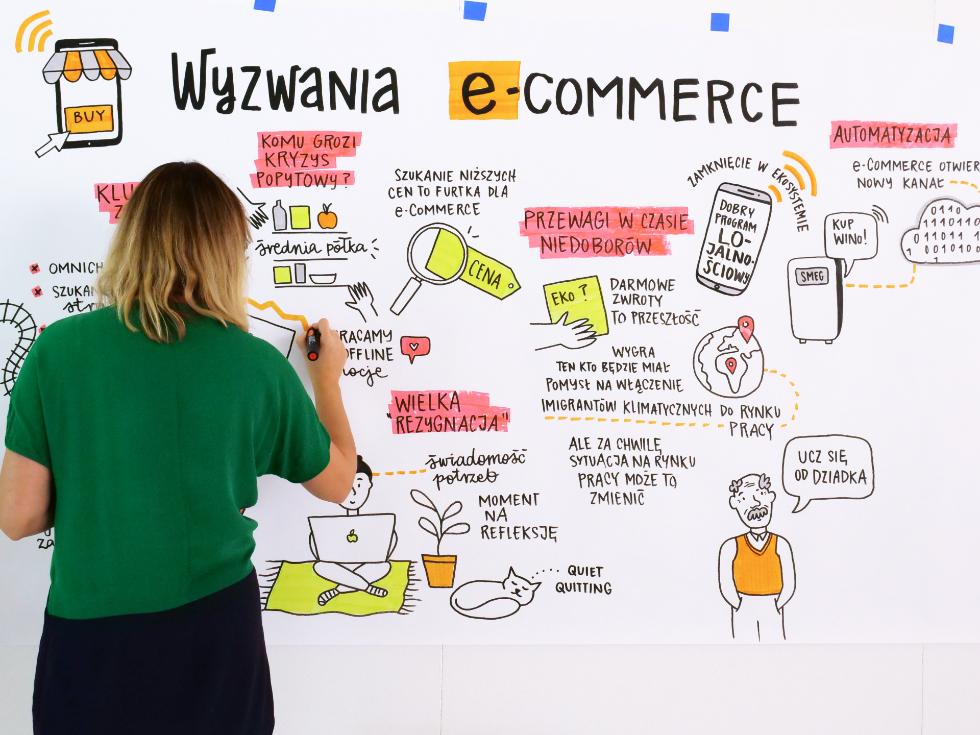 BUY
WYZWANIA e-COMMERCE
KOMU GROZI
KRYZYS
POPYTOWY?
średnia półka
OMNICH
SZUKA
SZUKANIE NIŻSZYCH
CEN TO FURTKA DLA
e-COMMERCE
CENA
RACAMY
OFFLINE
PRZEWAGI W CZASIE
NIEDOBORÓW
EKO?
DARMOWE
ZWROTY
TO PRZESZŁOŚĆ
WYGRA
TEN KTO BĘDZIE MIAŁ
POMYSŁ NA WŁĄCZENIE
IMIGRANTÓW KLIMATYCZNYCH DO RYNKU
PRACY
ALE ZA CHWILĘ
SYTUACJA NA RYNKU
PRACY MOŻE TO
ZMIENIĆ
ZAMKNIĘCIE W EKOSYSTEMIE
DOBRY
PROGRAM
LO-
JALNO-
ŚCIOWY
AUTOMATYZACJA
e-COMMERCE OTWIER
NOWY KANAŁ
KUP
WINO!
SMEG
0110
111011
011011 1
001010
1
WIELKA
"REZYGNACJA"
świadomość
potrzeb
MOMENT
NA
REFLEKSJĘ
QUIET
QUITTING
UCZ SIĘ
OD DZIADKA